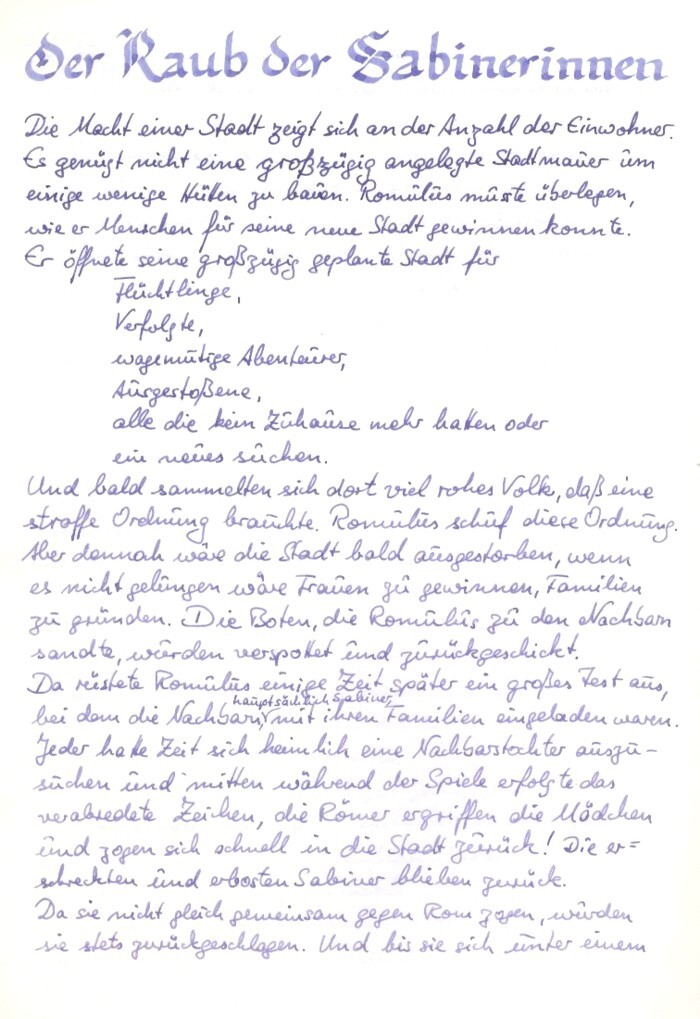 Der Raub der Sabinerinnen
Die Macht einer Stadt zeigt sich an der Anzahl der Einwohner.
Es genügt nicht eine großzügig angelegte Stadtmauer um
einige wenige Hütten zu bauen. Romulus mußte überlegen,
wie er Menschen für seine neue Stadt gewinnen konnte.
Er öffnete seine großzügig geplante Stadt für
Flüchtlinge,
Verfolgte,
wagemutige Abenteurer,
Ausgestoßene,
alle die kein Zuhause mehr hatten oder
ein neues suchen.
Und bald sammelten sich dort viel rohes Volk, daß eine
straffe Ordnung brauchte. Romulus schuf diese Ordnung.
Aber dennoch wäre die Stadt bald ausgestorben, wenn
es nicht gelungen wäre Frauen zu gewinnen, Familien
zu gründen. Die Boten, die Romulus zu den Nachbarn
sandte, wurden verspottet und zurückgeschickt.
Da rüstete Romulus einige Zeit später ein großes Fest aus,
hauptsächlich Sabiner,
bei dem die Nachbarn, mit ihren Familien eingeladen waren.
Jeder hatte Zeit sich heimlich eine Nachbarstochter auszu-
suchen und mitten während der Spiele erfolgte das
verabredete Zeichen, die Römer ergriffen die Mädchen
und zogen sich schnell in die Stadt zurück! Die er=
schreckten und erbosten Sabiner blieben zurück.
Da sie nicht gleich gemeinsam gegen Rom zogen, wurden
sie stets zurückgeschlagen. Und bis sie sich unter einem